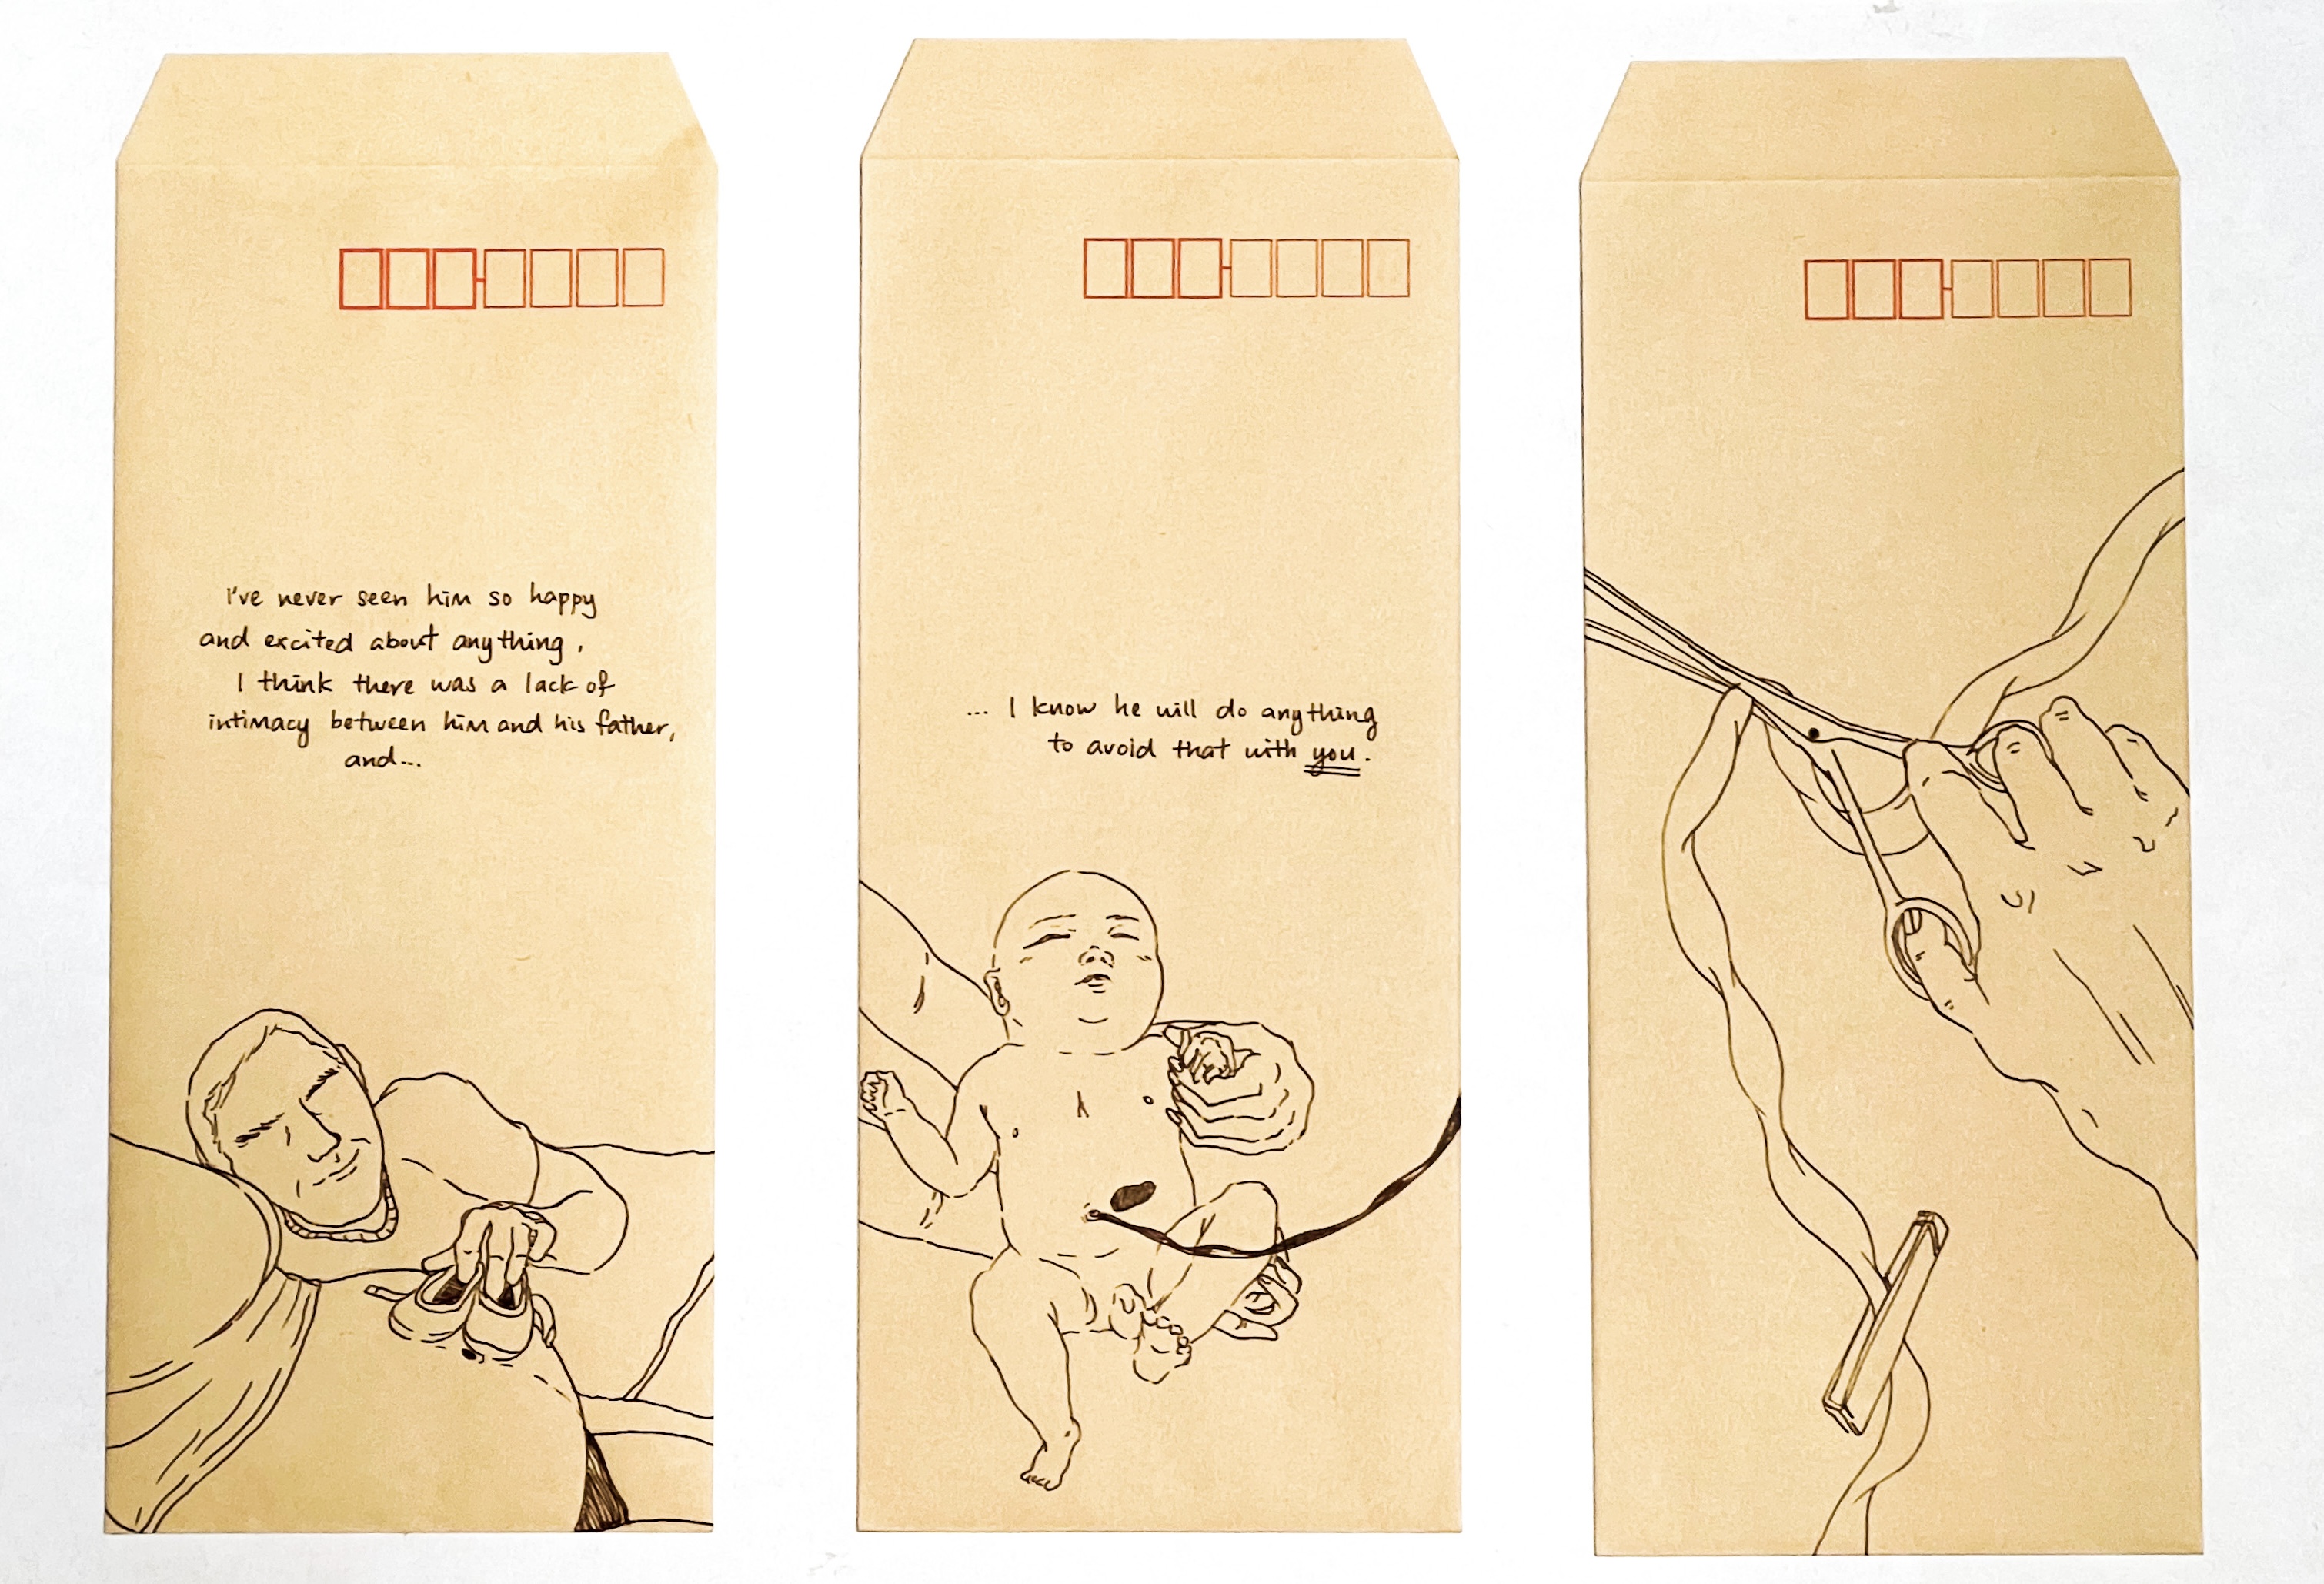 I've never seen him so happy
and excited about anything.
I think there was a lack of
intimacy between him and his father,
and...
... I know he will do anything
to avoid that with you.